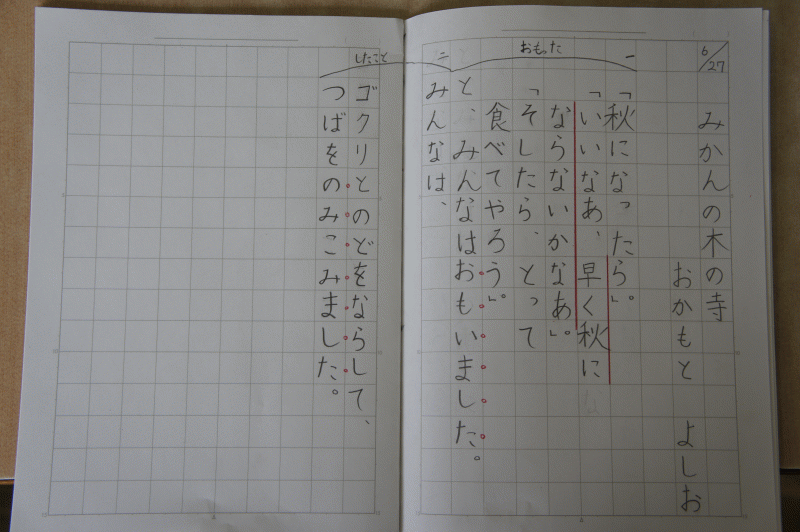 6/27
みかんの木の寺
おかもと よしお
一
おもった
「秋になったら」。
「いいなあ、早く秋に
ならないかなあ」。
「そしたら、とって
食べてやろう」。
と、みんなはおもいました。
二
したこと
みんなは、
ゴクリとのどをならして、
つばをのみこみました。